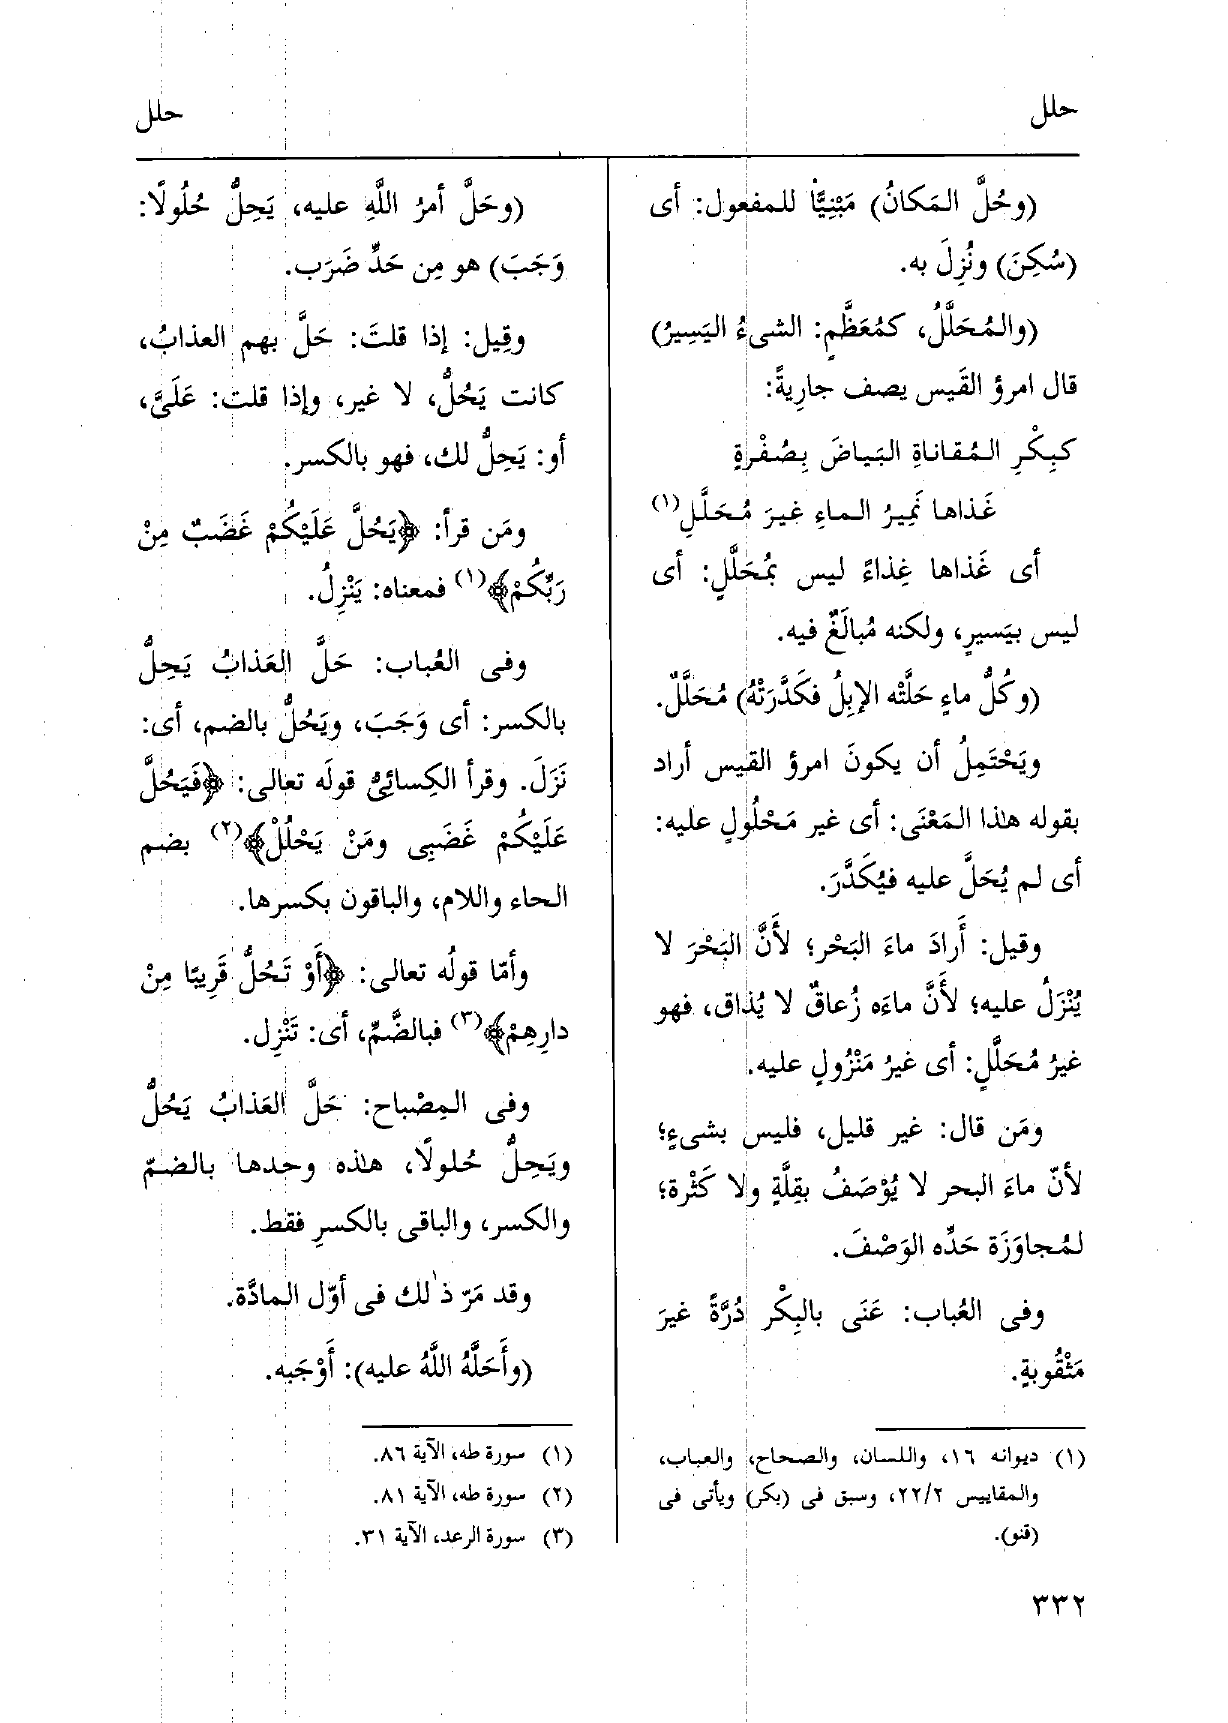 حلل
حلل
(وحُلَّ المَكانُ) مَبْنِيًّا للمفعول: أى
(سُكِنَ) ونُزِلَ به.
(والمُحَلَّلُ، كمُعَظَّمٍ: الشىءُ اليَسِيرُ)
قال امرؤ القَيس يصف جارِيةً:
كبِكْرِ المُقاناةِ البَياضَ بِصُفْرةٍ
غَذاها نَمِيرُ الماءِ غيرَ مُحَلَّلِ(١)
أى غَذاها غِذاءً ليس بمُحَلَّلٍ: أى
ليس بيَسيرٍ، ولكنه مُبالَغٌ فيه.
(وكُلُّ ماءٍ حَلَّتْه الإبِلُ فكَدَّرَتْهُ) مُحَلَّلٌ.
ويَحْتَمِلُ أن يكونَ امرؤ القيس أراد
بقوله هذا المَعْنَى: أى غير مَحْلُولٍ عليه:
أى لم يُحَلَّ عليه فيُكَدَّرَ.
وقيل: أَرادَ ماءَ البَحْر؛ لأَنَّ البَحْرَ لا
يُنْزَلُ عليه؛ لأَنَّ ماءَه زُعاقٌ لا يُذاق، فهو
غيرُ مُحَلَّلٍ: أى غيرُ مَنْزُولٍ عليه.
ومَن قال: غير قليل، فليس بشىءٍ؛
لأنّ ماءَ البحر لا يُوْصَفُ بقِلَّةٍ ولا كَثْرة؛
لمُجاوَزَة حَدِّه الوَصْفَ.
وفى العُباب: عَنَى بالبِكْر دُرَّةً غيرَ
مَثْقُوبةٍ.
(١) ديوانه ١٦، واللسان، والصحاح، والعباب،
والمقاييس ٢٢/٢، وسبق فى (بكر) ويأتى فى
(قنو).
(وحَلَّ أمرُ اللَّهِ عليه، يَحِلُّ حُلُولًا:
وَجَبَ) هو مِن حَدِّ ضَرَب.
وقِيل: إذا قلتَ: حَلَّ بهم العذابُ،
كانت يَحُلُّ، لا غير، وإذا قلت: عَلَىَّ،
أو: يَحِلُّ لك، فهو بالكسر.
ومَن قرأ: ﴿يَحُلَّ عَلَيْكُمْ غَضَبٌ مِنْ
رَبِّكُمْ﴾(١) فمعناه: يَنْزِلُ.
وفى العُباب: حَلَّ العَذابُ يَحِلُّ
بالكسر: أى وَجَبَ، ويَحُلُّ بالضم، أى:
نَزَلَ. وقرأ الكِسائىُّ قولَه تعالى: ﴿فَيَحُلَّ
عَلَيْكُمْ غَضَبِى ومَنْ يَحْلُلْ﴾(٢) بضم
الحاء واللام، والباقون بكسرها.
وأمّا قولُه تعالى: ﴿أَوْ تَحُلُّ قَرِيبًا مِنْ
دارِهِمْ﴾(٣) فبالضَّمِّ، أى: تَنْزِل.
وفى المِصْباح: حَلَّ العَذابُ يَحُلُّ
ويَحِلُّ حُلولًا، هذه وحدها بالضمّ
والكسر، والباقى بالكسرِ فقط.
وقد مَرّ ذلك فى أوّل المادَّة.
(وأَحَلَّهُ اللَّهُ عليه): أَوْجَبه.
(١) سورة طه، الآية ٨٦.
(٢) سورة طه، الآية ٨١.
(٣) سورة الرعد، الآية ٣١.
٣٣٢